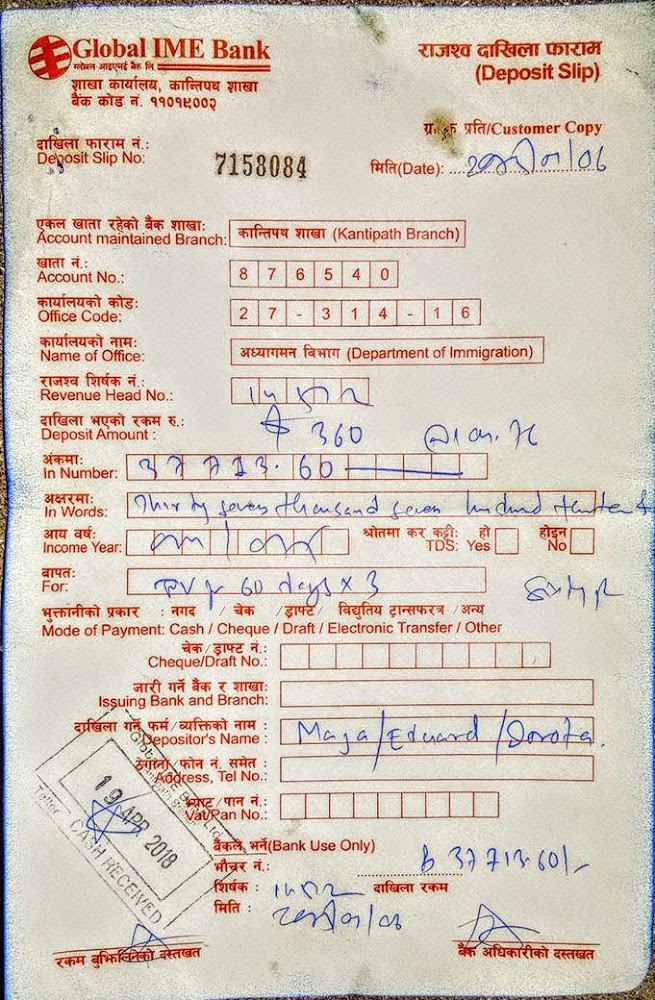 Global IME Bank
ग्लोबल आइएमई बैंक लि.
शाखा कार्यालय, कान्तिपथ शाखा
बैंक कोड नं. ११०१९००२
राजश्व दाखिला फाराम
(Deposit Slip)
ग्राहक प्रति/Customer Copy
दाखिला फाराम नं.:
Deposit Slip No: 7158084
मिति(Date):
एकल खाता रहेको बैंक शाखा:
Account maintained Branch: कान्तिपथ शाखा (Kantipath Branch)
खाता नं.:
Account No.: 876540
कार्यालयको कोड:
Office Code: 27-314-16
कार्यालयको नाम:
Name of Office: अध्यागमन विभाग (Department of Immigration)
राजश्व शिर्षक नं.:
Revenue Head No.:
दाखिला भएको रकम रु.:
Deposit Amount : $ 360
अंकमा:
In Number: 37713.60
अक्षरमा:
In Words: Thirty seven thousand seven hundred
आय वर्ष:
Income Year:
श्रोतमा कर कट्टी: हो होइन
TDS: Yes No
बापत:
For: 60 days x 3
भुक्तानीको प्रकार : नगद / चेक / ड्राफ्ट / विद्युतिय ट्रान्सफरत्र / अन्य
Mode of Payment: Cash / Cheque / Draft / Electronic Transfer / Other
चेक/ड्राफ्ट नं.:
Cheque/Draft No.:
जारी गर्ने बैंक र शाखा:
Issuing Bank and Branch:
दाखिला गर्ने फर्म/व्यक्तिको नाम :
Depositor's Name : Maja/Eduard/Dorota.
ठेगाना फोन नं. समेत :
Address, Tel No.:
भ्याट/पान नं.:
Vat/Pan No.:
Global IME Bank Ltd.
Kantipath Branch
19 APR 2018
Teller CASH RECEIVED
बैंकले भर्ने(Bank Use Only)
भौचर नं.: 37713.60/-
शिर्षक : दाखिला रकम
मिति :
रकम बुझिलिनेको दस्तखत
बैंक अधिकारीको दस्तखत